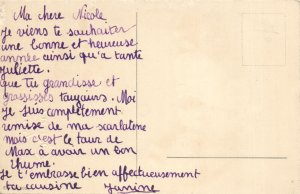 Ma chere Nicole
je viens te souhaiter
une bonne et heureuse
année ainsi qu'a tante
juliette.
que tu grandisse et
grossisses toujours. Moi
je suis complètement
remise de ma scarlatine
mais c'est le tour de
Max à avoir un bon
rhume.
je t'embrasse bien affectueusement
ta cousine Janine